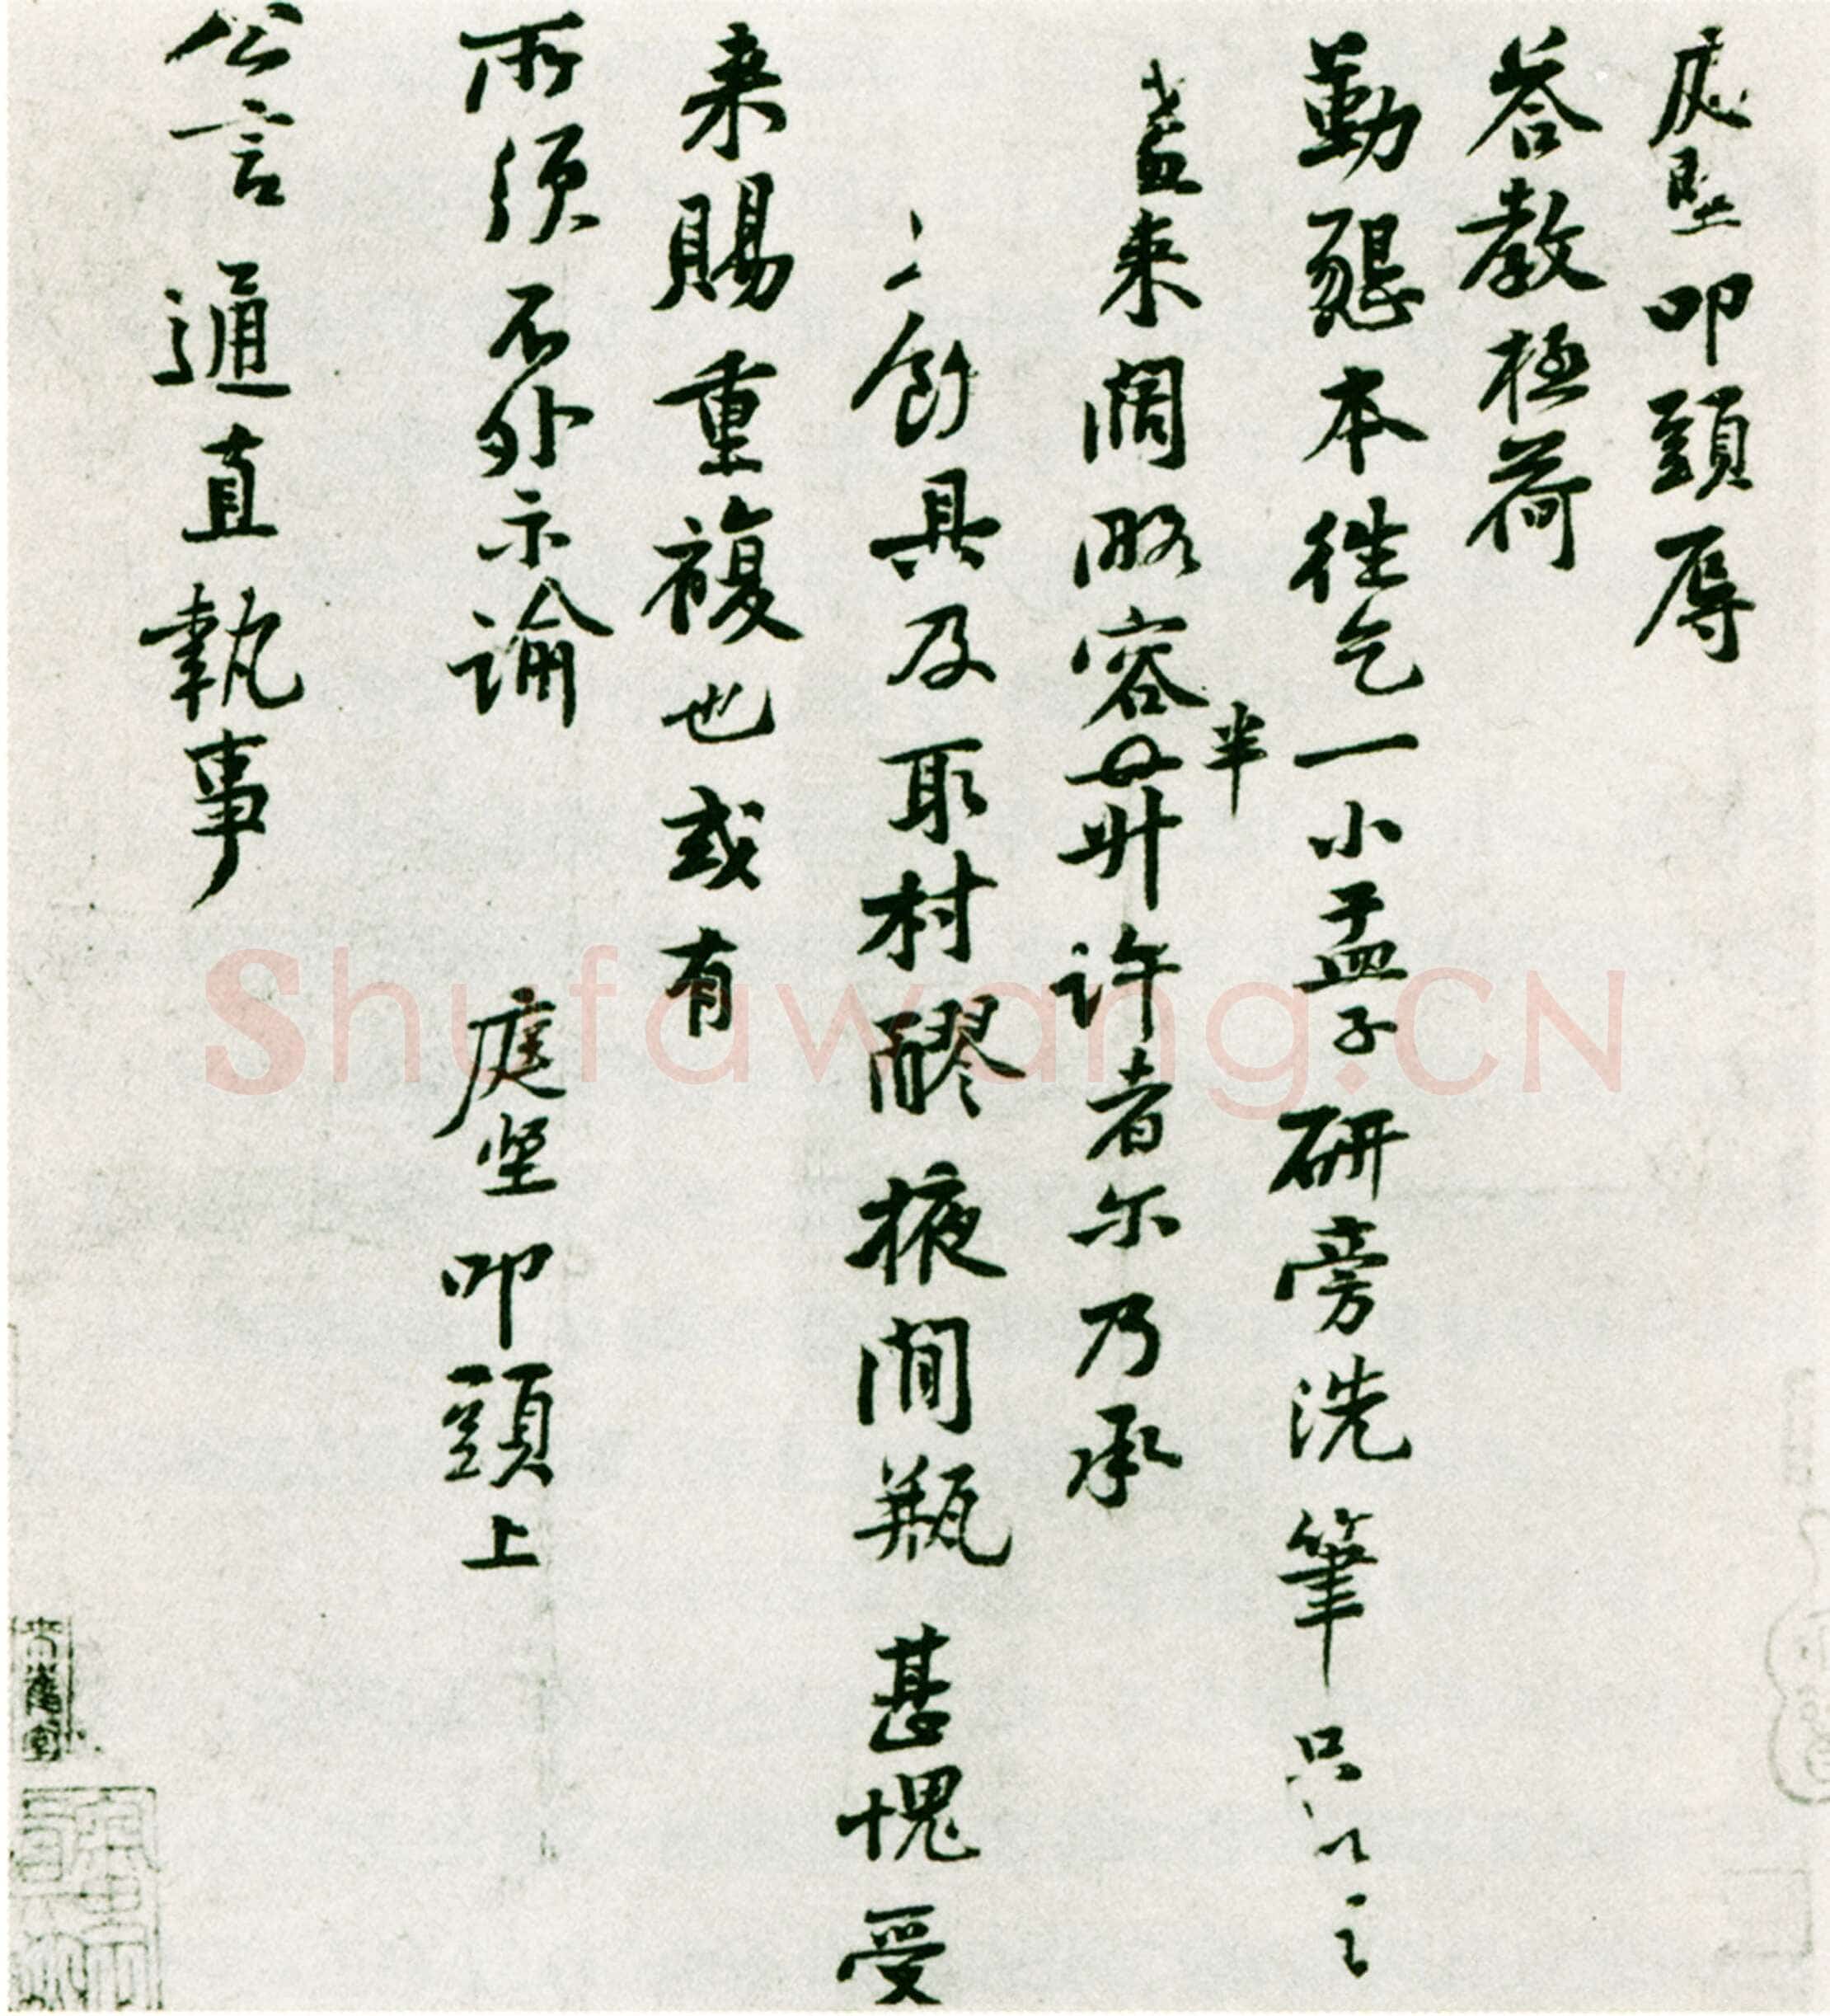 庭堅叩頭辱
答教極荷
勤懇本往乞一小盂子研旁洗筆只以言
盞来闊略容半升許者尔乃承
飲具及取村醪掖間瓶甚愧受
来賜重複也或有
所須不外示諭
庭坚叩頭上
公言通直執事
Shufawang.CN